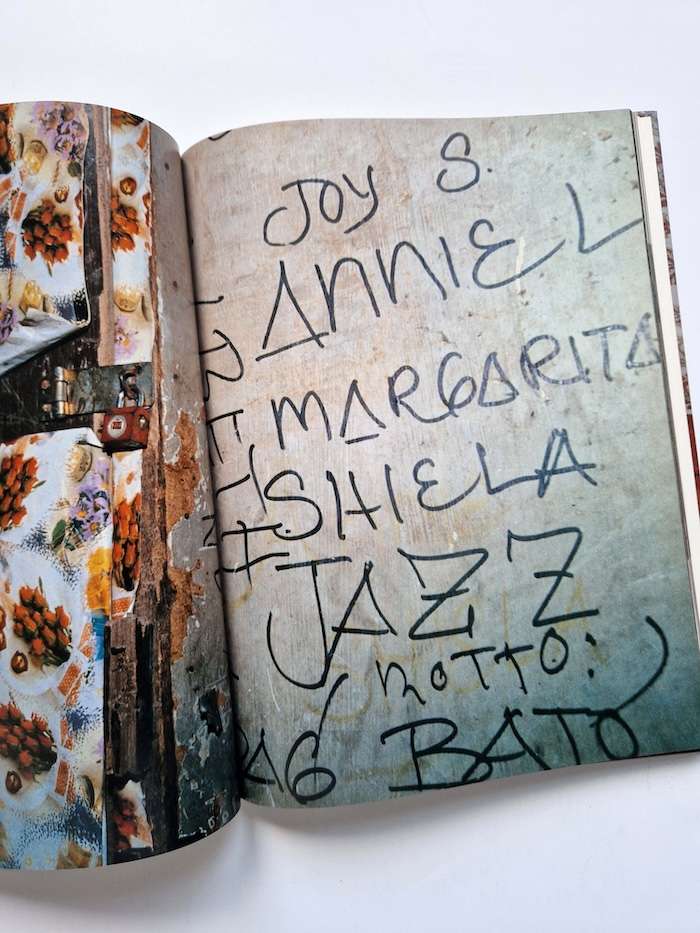 JOY S.
ANNIE L
MARGARITA
SHIELA
JAZZ
(MOTTO:
BATO